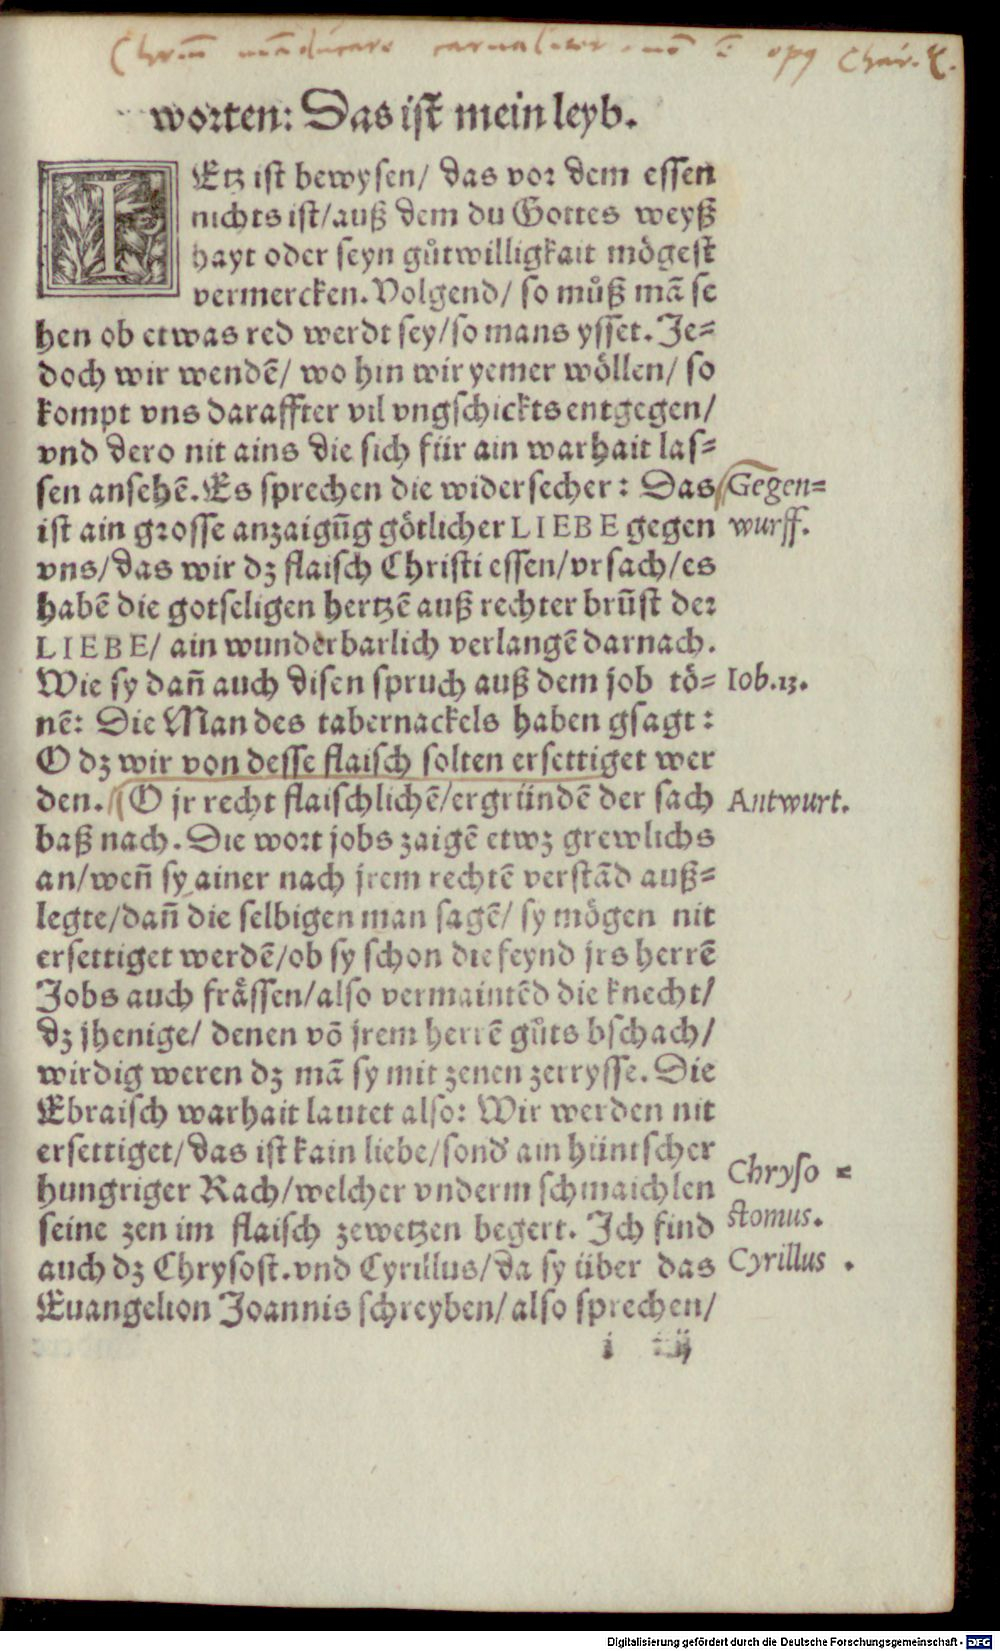 worten: Das ist mein leyb.
IEtz ist bewysen/ das vor dem essen
nichts ist/auß dem du Gottes weyß
hayt oder seyn gůtwilligkait mögest
vermercken. Volgend/ so můß mā se
hen ob etwas red werdt sey/so mans ysset. Je-
doch wir wendē/ wo hin wir yemer wöllen/ so
kompt vns daraffter vil vngschickts entgegen/
vnd dero nit ains die sich für ain warhait las-
sen ansehē. Es sprechen die widersecher: Das
Gegen-
ist ain grosse anzaigūg götlicher LIEBE gegen
wurff.
vns/das wir dz flaisch Christi essen/vrsach/es
habē die gotseligen hertzē auß rechter brūst der
LIEBE/ ain wunderbarlich verlangē darnach.
Wie sy dañ auch disen spruch auß dem job tö-
Iob.13.
nē: Die Man des tabernackels haben gsagt:
O dz wir von desse flaisch solten ersettiget wer
den. O jr recht flaischlichē/ergründē der sach
Antwurt.
baß nach. Die wort jobs zaigē etwz grewlichs
an/weñ sy ainer nach jrem rechtē verstād auß-
legte/dañ die selbigen man sagē/ sy mögen nit
ersettiget werdē/ob sy schon die feynd jrs herrē
Jobs auch frässen/also vermaintēd die knecht/
dz jhenige/ denen vō jrem herrē gůts bschach/
wirdig weren dz mā sy mit zenen zerrysse. Die
Ebraisch warhait lautet also: Wir werden nit
ersettiget/das ist kain liebe/sond' ain hüntscher
hungriger Rach/welcher vnderm schmaichlen
Chryso-
seine zen im flaisch zewetzen begert. Ich find
stomus.
auch dz Chrysost. vnd Cyrillus/da sy über das
Cyrillus.
Euangelion Joannis schreyben/also sprechen/
Digitalisierung gefördert durch die Deutsche Forschungsgemeinschaft - DFG